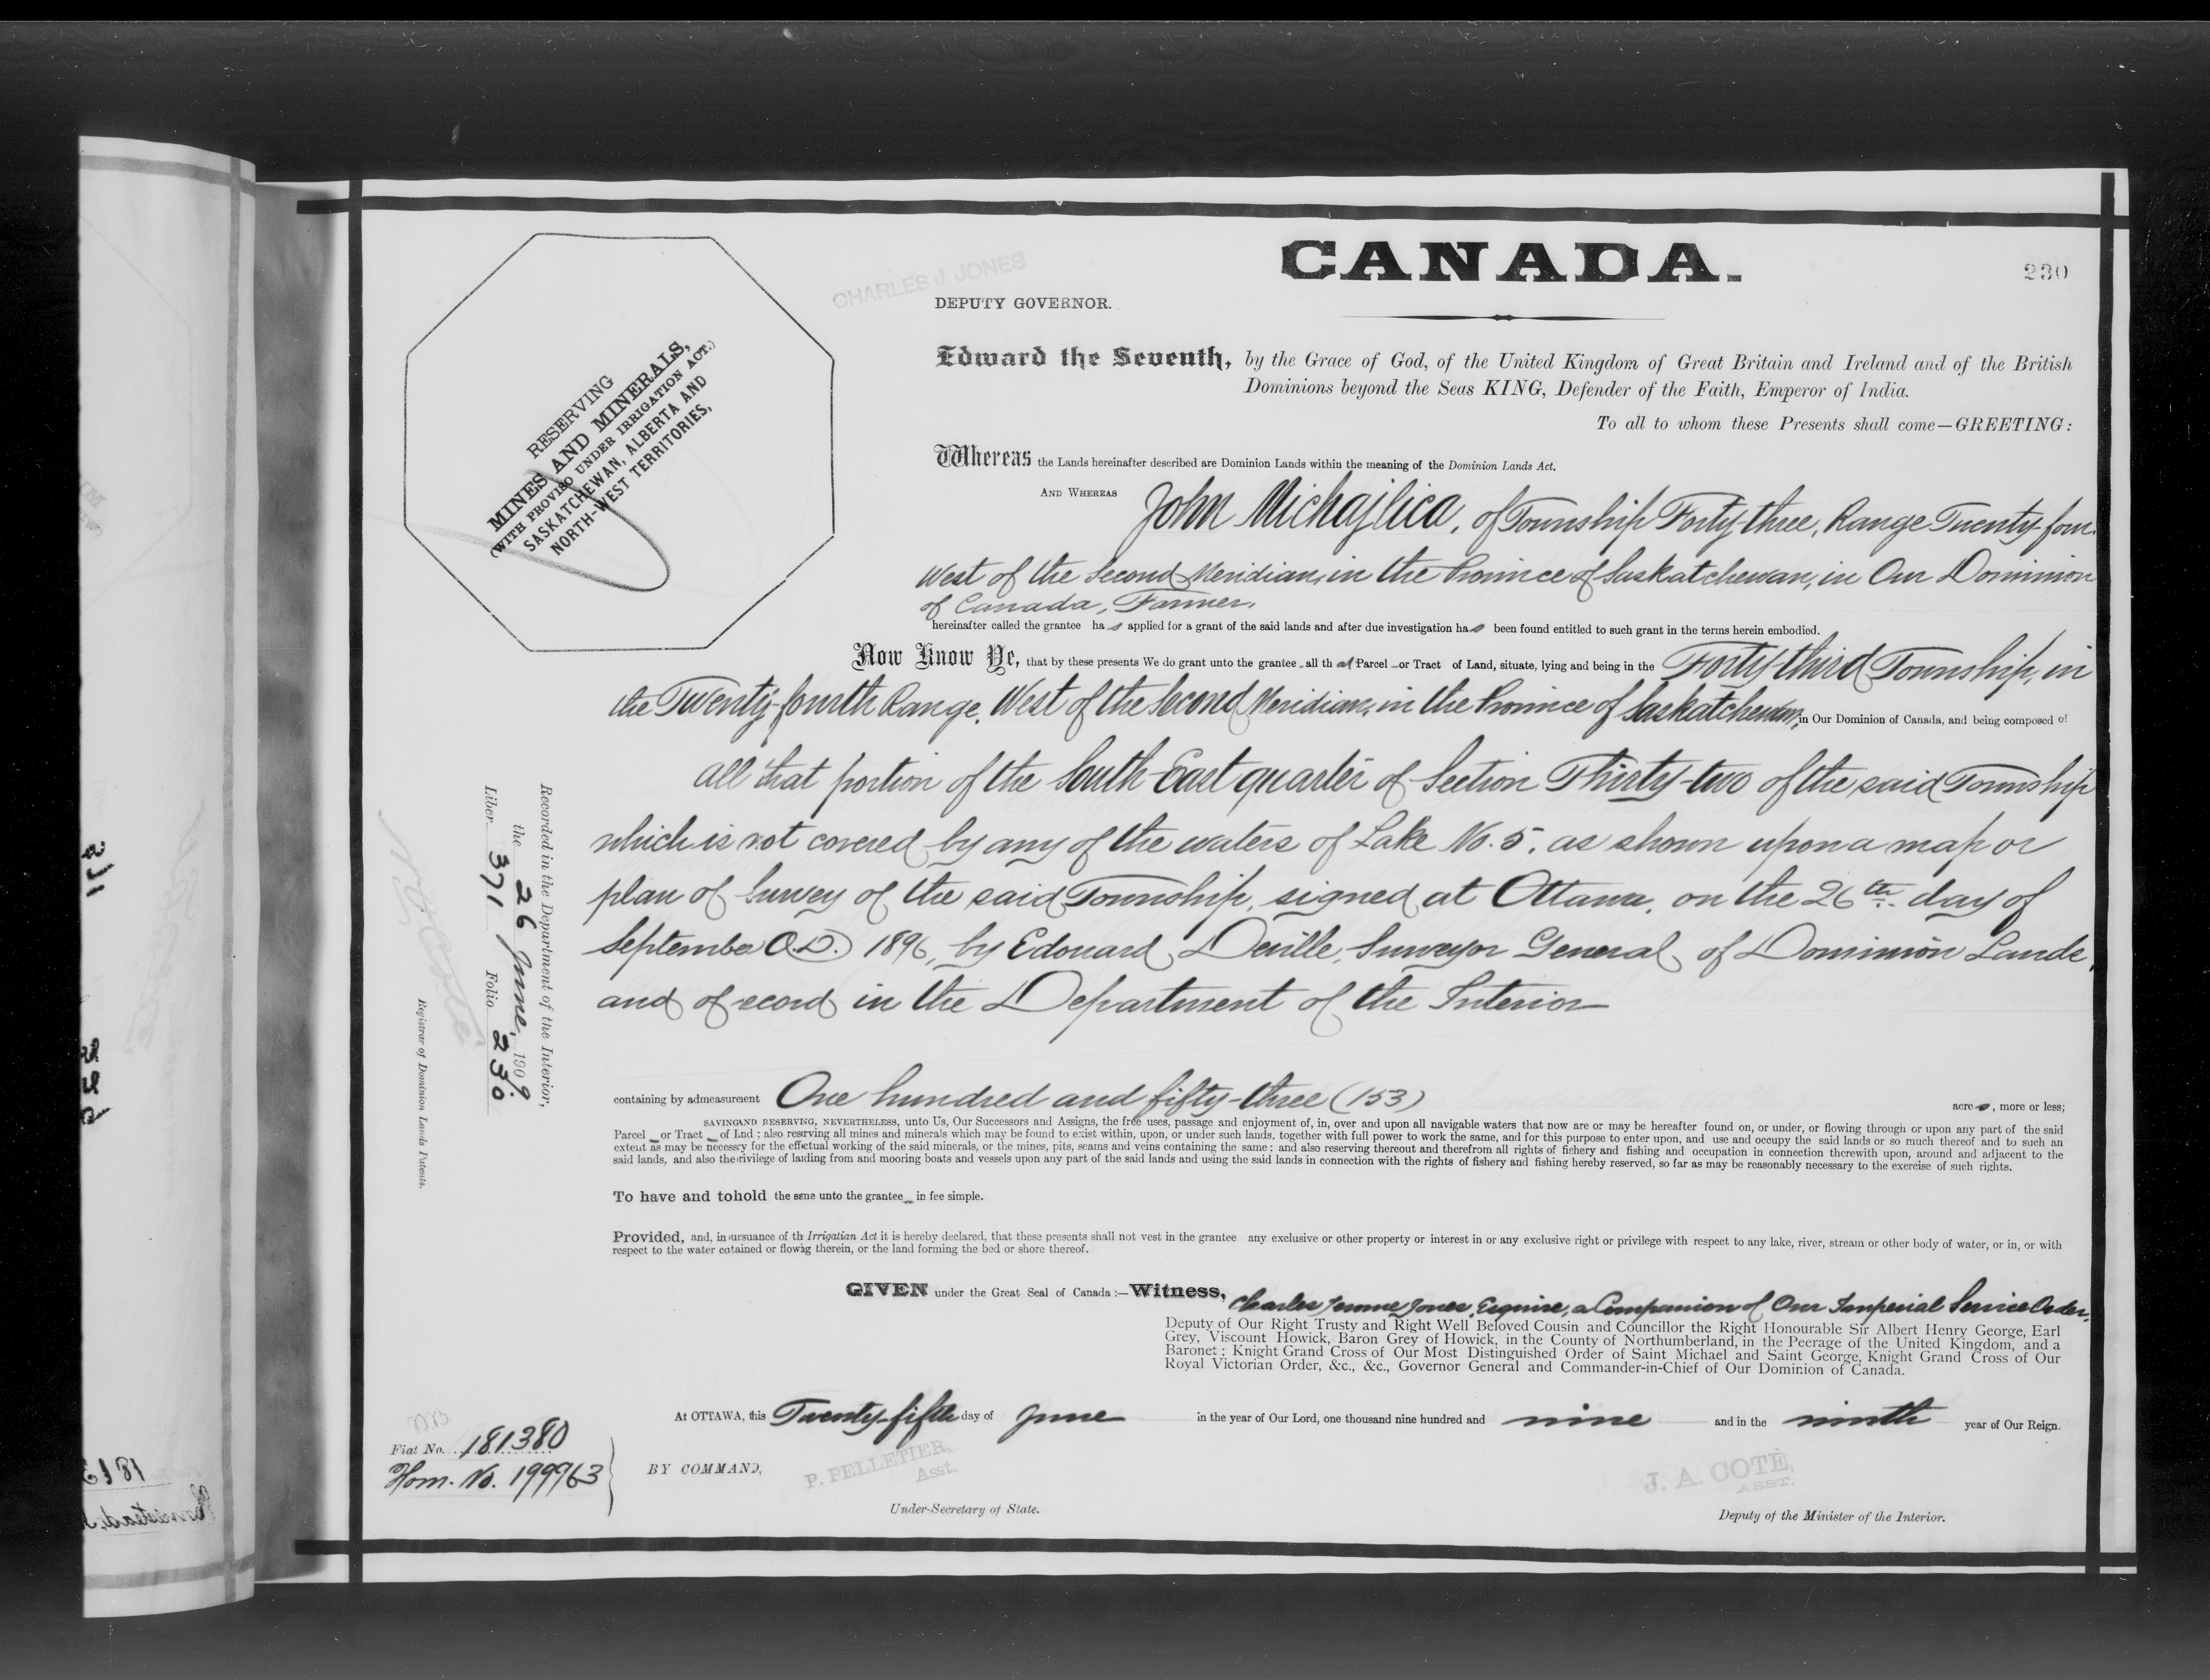 CANADA.
230
CHARLES J. JONES
DEPUTY GOVERNOR.
RESERVING
MINES AND MINERALS,
(WITH PROVISO UNDER IRRIGATION ACT.)
SASKATCHEWAN, ALBERTA AND
NORTH-WEST TERRITORIES,
Edward the Seventh, by the Grace of God, of the United Kingdom of Great Britain and Ireland and of the British
Dominions beyond the Seas KING, Defender of the Faith, Emperor of India.
To all to whom these Presents shall come—GREETING:
Whereas the Lands hereinafter described are Dominion Lands within the meaning of the Dominion Lands Act.
AND WHEREAS John Michajlica, of Township Forty-three, Range Twenty-four
West of the Second Meridian, in the Province of Saskatchewan, in Our Dominion
of Canada, Farmer,
hereinafter called the grantee has applied for a grant of the said lands and after due investigation has been found entitled to such grant in the terms herein embodied.
Now Know Ye, that by these presents We do grant unto the grantee all that Parcel or Tract of Land, situate, lying and being in the Forty-third Township, in
the Twenty-fourth Range, West of the Second Meridian, in the Province of Saskatchewan, in Our Dominion of Canada, and being composed of
all that portion of the South East quarter of Section Thirty-two of the said Township
which is not covered by any of the waters of Lake No. 5, as shown upon a map or
plan of Survey of the said Township, signed at Ottawa, on the 26th day of
September A.D. 1896, by Edouard Deville, Surveyor General of Dominion Lands,
and of record in the Department of the Interior
containing by admeasurement One hundred and fifty-three (153) acres, more or less;
SAVING AND RESERVING, NEVERTHELESS, unto Us, Our Successors and Assigns, the free uses, passage and enjoyment of, in, over and upon all navigable waters that now are or may be hereafter found on, or under, or flowing through or upon any part of the said
Parcel or Tract of Lnd; also reserving all mines and minerals which may be found to exist within, upon, or under such lands, together with full power to work the same, and for this purpose to enter upon, and use and occupy the said lands or so much thereof and to such an
extent as may be necessry for the effectual working of the said minerals, or the mines, pits, seams and veins containing the same; and also reserving thereout and therefrom all rights of fishery and fishing and occupation in connection therewith upon, around and adjacent to the
said lands, and also the rivilege of laiding from and mooring boats and vessels upon any part of the said lands and using the said lands in connection with the rights of fishery and fishing hereby reserved, so far as may be reasonably necessary to the exercise of such rights.
To have and to hold the sme unto the grantee in fee simple.
Provided, and, in ursuance of th Irrigation Act it is hereby declared, that these presents shall not vest in the grantee any exclusive or other property or interest in or any exclusive right or privilege with respect to any lake, river, stream or other body of water, or in, or with
respect to the water cotained or flowig therein, or the land forming the bed or shore thereof.
GIVEN under the Great Seal of Canada:—Witness, Charles Jones, Esquire, a Companion of Our Imperial Service Order,
Deputy of Our Right Trusty and Right Well Beloved Cousin and Councillor the Right Honourable Sir Albert Henry George, Earl
Grey, Viscount Howick, Baron Grey of Howick, in the County of Northumberland, in the Peerage of the United Kingdom, and a
Baronet; Knight Grand Cross of Our Most Distinguished Order of Saint Michael and Saint George, Knight Grand Cross of Our
Royal Victorian Order, &c., &c., Governor General and Commander-in-Chief of Our Dominion of Canada.
At OTTAWA, this Twenty-fifth day of June in the year of Our Lord, one thousand nine hundred and nine and in the ninth year of Our Reign.
Fiat No. 181380
Hom. No. 199963
BY COMMAND,
P. PELLETIER,
Asst.
Under-Secretary of State.
J. A. COTÉ,
ASST.
Deputy of the Minister of the Interior.
Recorded in the Department of the Interior,
the 26 June, 1909.
Liber 371 Folio 230
Registrar of Dominion Lands Patents.